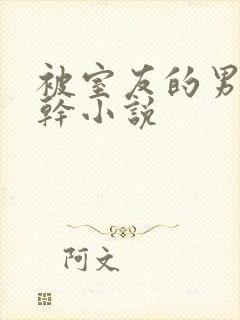 被室友的男
幹小說
阿文